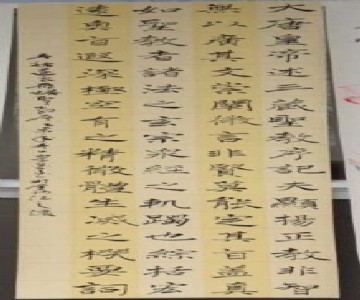 大唐皇帝述三藏聖教序記夫顯揚正教非智
無以廣其文崇闡微言非賢莫能定其旨蓋真
如聖教者諸法之玄宗眾經之軌躅也綜括宏
遠奧旨遐深極空有之精微體生滅之機要詞